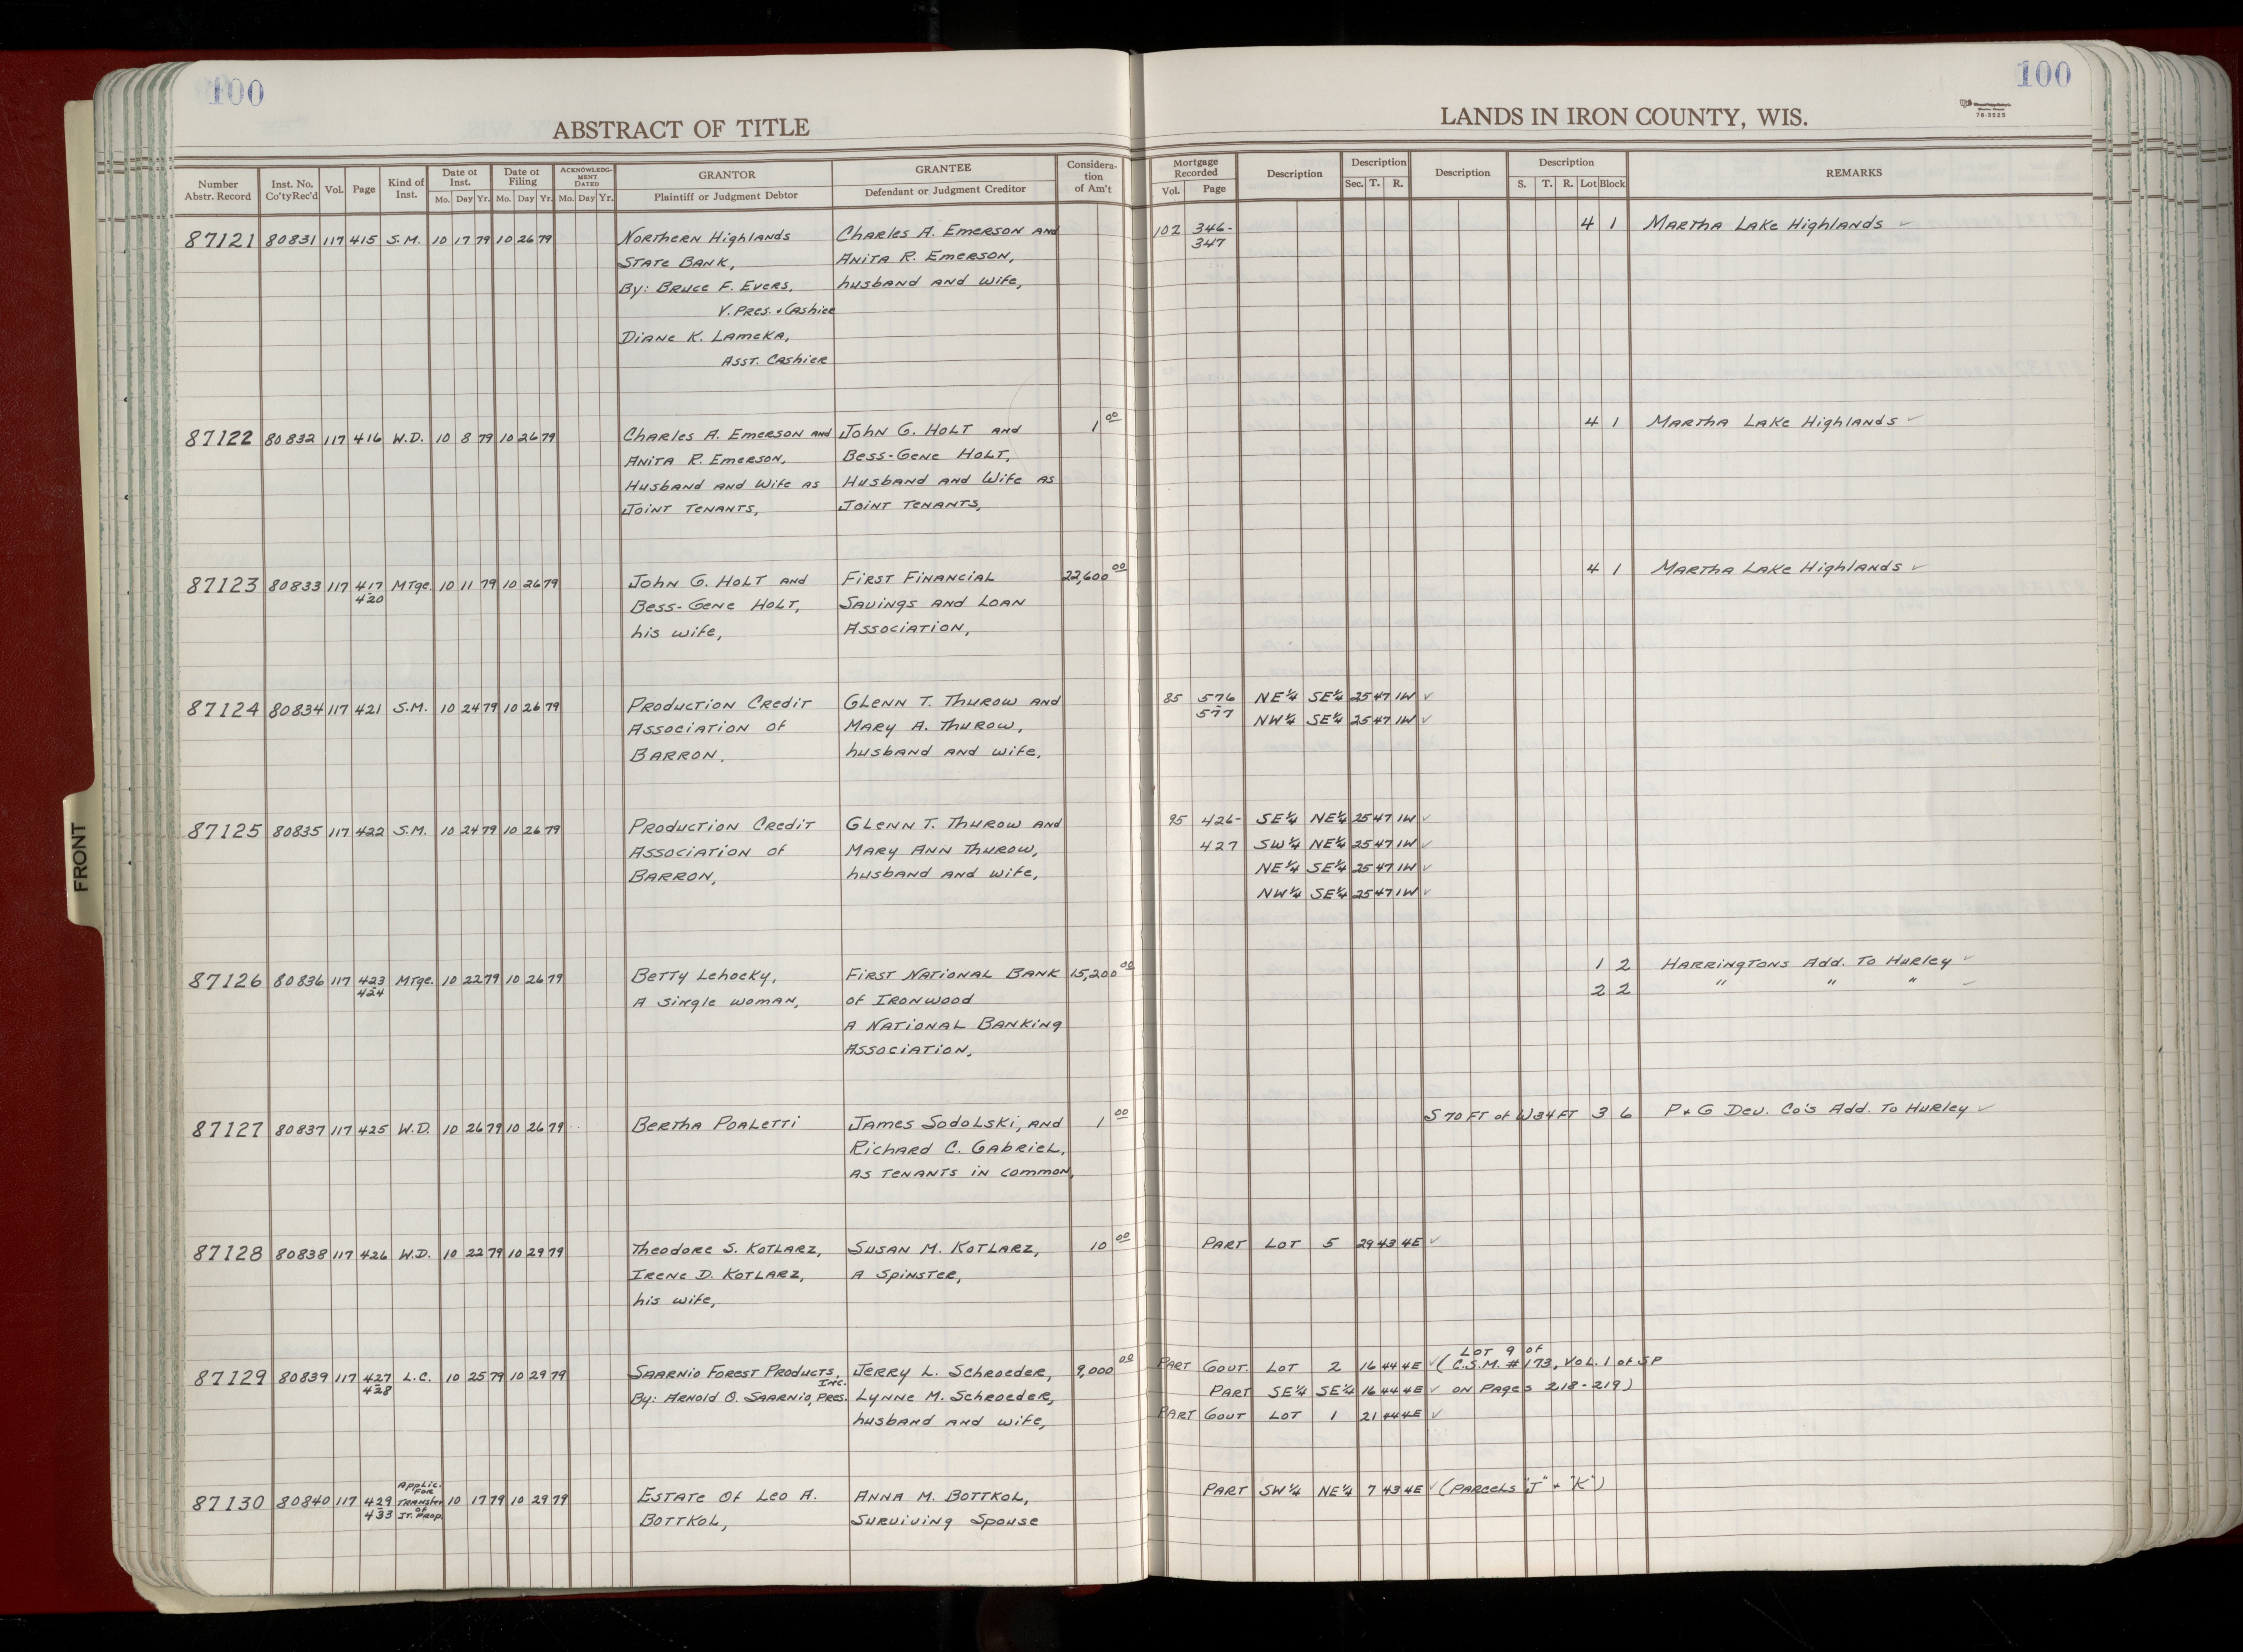 100
100
ABSTRACT OF TITLE
LANDS IN IRON COUNTY, WIS.
78-3525
Number Abstr. Record
Inst. No. Co'ty Rec'd
Vol.
Page
Kind of Inst.
Date of Inst.
Mo. Day Yr.
Date of Filing
Mo. Day Yr.
ACKNOWLEDGMENT DATED
Mo. Day Yr.
GRANTOR
Plaintiff or Judgment Debtor
GRANTEE
Defendant or Judgment Creditor
Consideration of Am't
Mortgage Recorded
Vol. Page
Description
Description
Sec. T. R.
Description
Description
S. T. R. Lot Block
REMARKS
87121 80831 117 415 S.M. 10 17 79 10 26 79 Northern Highlands Charles A. Emerson and 102 346- 4 1 Martha Lake Highlands
State Bank, Anita R. Emerson, 347
By: Bruce F. Evers, husband and wife,
V. Pres. & Cashier
Diane K. Lameka,
Asst. Cashier
87122 80832 117 416 W.D. 10 8 79 10 26 79 Charles A. Emerson and John G. Holt and 1 00 4 1 Martha Lake Highlands
Anita R. Emerson, Bess-Gene Holt,
Husband and Wife as Husband and Wife as
Joint Tenants, Joint Tenants,
87123 80833 117 417-420 Mtge. 10 11 79 10 26 79 John G. Holt and First Financial 22,600 00 4 1 Martha Lake Highlands
Bess-Gene Holt, Savings and Loan
his wife, Association,
87124 80834 117 421 S.M. 10 24 79 10 26 79 Production Credit Glenn T. Thurow and 85 576- NE¼ SE¼ 25 47 1W
Association of Mary A. Thurow, 577 NW¼ SE¼ 25 47 1W
Barron, husband and wife,
87125 80835 117 422 S.M. 10 24 79 10 26 79 Production Credit Glenn T. Thurow and 95 426- SE¼ NE¼ 25 47 1W
Association of Mary Ann Thurow, 427 SW¼ NE¼ 25 47 1W
Barron, husband and wife, NE¼ SE¼ 25 47 1W
NW¼ SE¼ 25 47 1W
87126 80836 117 423-424 Mtge. 10 22 79 10 26 79 Betty Lehocky, First National Bank 15,200 00 1 2 Harringtons Add. To Hurley
A single woman, of Ironwood 2 2 " " "
A National Banking
Association,
87127 80837 117 425 W.D. 10 26 79 10 26 79 Bertha Poaletti James Sodolski, and 1 00 S 70 FT of W 34 FT 3 6 P & G Dev. Co's Add. To Hurley
Richard C. Gabriel,
as tenants in common,
87128 80838 117 426 W.D. 10 22 79 10 29 79 Theodore S. Kotlarz, Susan M. Kotlarz, 10 00 Part Lot 5 29 43 4E
Irene D. Kotlarz, A Spinster,
his wife,
87129 80839 117 427-428 L.C. 10 25 79 10 29 79 Saarnio Forest Products, Inc. Jerry L. Schroeder, 9,000 00 Part Gout. Lot 2 16 44 4E (Lot 9 of C.S.M. #173, Vol. 1 of SP
By: Arnold O. Saarnio, Pres. Lynne M. Schroeder, Part SE¼ SE¼ 16 44 4E on Pages 218-219)
husband and wife, Part Gout Lot 1 21 44 4E
87130 80840 117 429-433 Applic. for Transfer of Jt. Prop. 10 17 79 10 29 79 Estate Of Leo A. Anna M. Bottkol, Part SW¼ NE¼ 7 43 4E (Parcels "J" & "K")
Bottkol, Surviving Spouse
FRONT